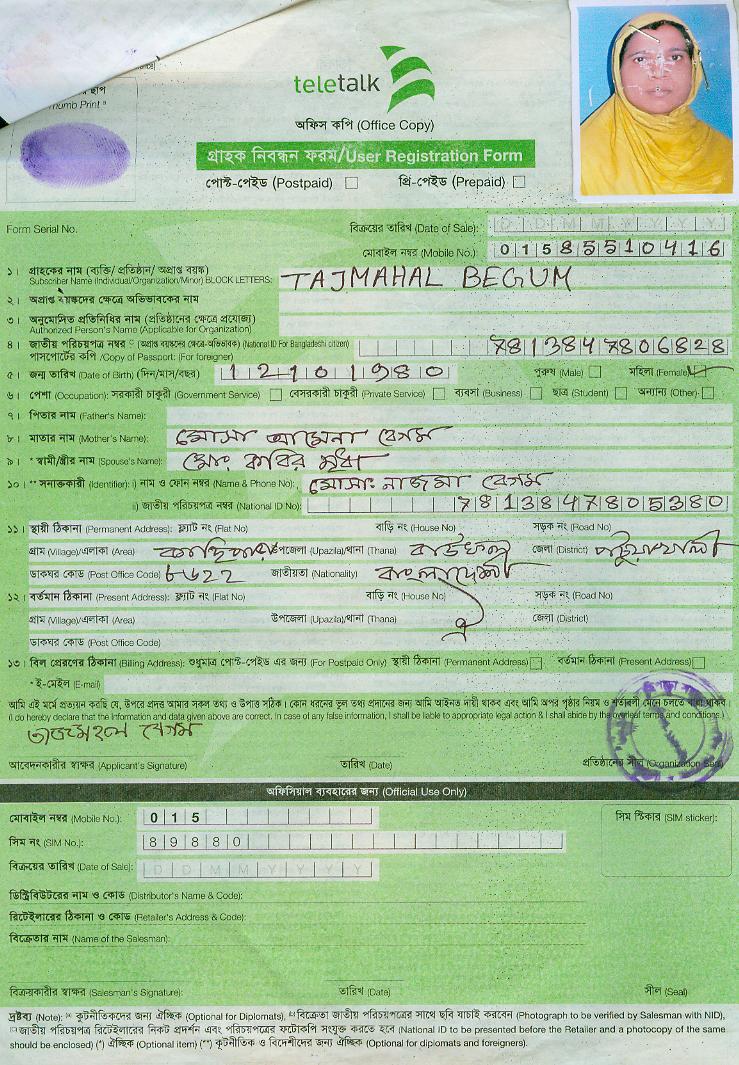 ছাপ
Thumb Print
teletalk
অফিস কপি (Office Copy)
গ্রাহক নিবন্ধন ফরম/User Registration Form
পোস্ট-পেইড (Postpaid) প্রি-পেইড (Prepaid)
Form Serial No. বিক্রয়ের তারিখ (Date of Sale): D D M M Y Y Y Y
মোবাইল নম্বর (Mobile No.): 01585510416
১। গ্রাহকের নাম (ব্যক্তি/ প্রতিষ্ঠান/ অপ্রাপ্ত বয়স্ক)
Subscriber Name (Individual/Organization/Minor) BLOCK LETTERS: TAJMAHAL BEGUM
২। অপ্রাপ্ত বয়স্কদের ক্ষেত্রে অভিভাবকের নাম
৩। অনুমোদিত প্রতিনিধির নাম (প্রতিষ্ঠানের ক্ষেত্রে প্রযোজ্য)
Authorized Person's Name (Applicable for Organization)
৪। জাতীয় পরিচয়পত্র নম্বর (অপ্রাপ্ত বয়স্কদের ক্ষেত্রে-অভিভাবক) (National ID For Bangladeshi citizen) 7813847806828
পাসপোর্টের কপি /Copy of Passport: (For foreigner)
৫। জন্ম তারিখ (Date of Birth) (দিন/মাস/বছর) 12101980 পুরুষ (Male) মহিলা (Female)
৬। পেশা (Occupation): সরকারী চাকুরী (Government Service) বেসরকারী চাকুরী (Private Service) ব্যবসা (Business) ছাত্র (Student) অন্যান্য (Other)
৭। পিতার নাম (Father's Name):
৮। মাতার নাম (Mother's Name): মোসা আমেনা বেগম
৯। * স্বামী/স্ত্রীর নাম (Spouse's Name): মোঃ কবির মৃধা
১০। ** সনাক্তকারী (Identifier): i) নাম ও ফোন নম্বর (Name & Phone No): মোসাঃ নাজমা বেগম
ii) জাতীয় পরিচয়পত্র নম্বর (National ID No): 7813847805380
১১। স্থায়ী ঠিকানা (Permanent Address): ফ্ল্যাট নং (Flat No) বাড়ি নং (House No) সড়ক নং (Road No)
গ্রাম (Village)/এলাকা (Area) উপজেলা (Upazila)/থানা (Thana) বাউফল জেলা (District) পটুয়াখালী
ডাকঘর কোড (Post Office Code) ৮৬২২ জাতীয়তা (Nationality) বাংলাদেশী
১২। বর্তমান ঠিকানা (Present Address): ফ্ল্যাট নং (Flat No) বাড়ি নং (House No) সড়ক নং (Road No)
গ্রাম (Village)/এলাকা (Area) উপজেলা (Upazila)/থানা (Thana) ঐ জেলা (District)
ডাকঘর কোড (Post Office Code)
১৩। বিল প্রেরণের ঠিকানা (Billing Address): শুধুমাত্র পোস্ট-পেইড এর জন্য (For Postpaid Only) স্থায়ী ঠিকানা (Permanent Address) বর্তমান ঠিকানা (Present Address)
* ই-মেইল (E-mail)
আমি এই মর্মে প্রত্যয়ন করছি যে, উপরে প্রদত্ত আমার সকল তথ্য ও উপাত্ত সঠিক। কোন ধরনের ভুল তথ্য প্রদানের জন্য আমি আইনত দায়ী থাকব এবং আমি অপর পৃষ্ঠার নিয়ম ও শর্তাবলী মেনে চলতে বাধ্য থাকব।
(I do hereby declare that the information and data given above are correct. In case of any false information, I shall be liable to appropriate legal action & I shall abide by the overleaf terms and conditions.)
তাজমহল বেগম
আবেদনকারীর স্বাক্ষর (Applicant's Signature) তারিখ (Date) প্রতিষ্ঠানের সীল (Organization Seal)
অফিসিয়াল ব্যবহারের জন্য (Official Use Only)
মোবাইল নম্বর (Mobile No.): 015 সিম স্টিকার (SIM sticker):
সিম নং (SIM No.): 89880
বিক্রয়ের তারিখ (Date of Sale): D D M M Y Y Y Y
ডিস্ট্রিবিউটরের নাম ও কোড (Distributor's Name & Code):
রিটেইলারের ঠিকানা ও কোড (Retailer's Address & Code):
বিক্রেতার নাম (Name of the Salesman):
বিক্রয়কারীর স্বাক্ষর (Salesman's Signature): তারিখ (Date) সীল (Seal)
দ্রষ্টব্য (Note): কূটনীতিকদের জন্য ঐচ্ছিক (Optional for Diplomats), বিক্রেতা জাতীয় পরিচয়পত্রের সাথে ছবি যাচাই করবেন (Photograph to be verified by Salesman with NID),
জাতীয় পরিচয়পত্র রিটেইলারের নিকট প্রদর্শন এবং পরিচয়পত্রের ফটোকপি সংযুক্ত করতে হবে (National ID to be presented before the Retailer and a photocopy of the same
should be enclosed) (*) ঐচ্ছিক (Optional item) (**) কূটনীতিক ও বিদেশীদের জন্য ঐচ্ছিক (Optional for diplomats and foreigners).